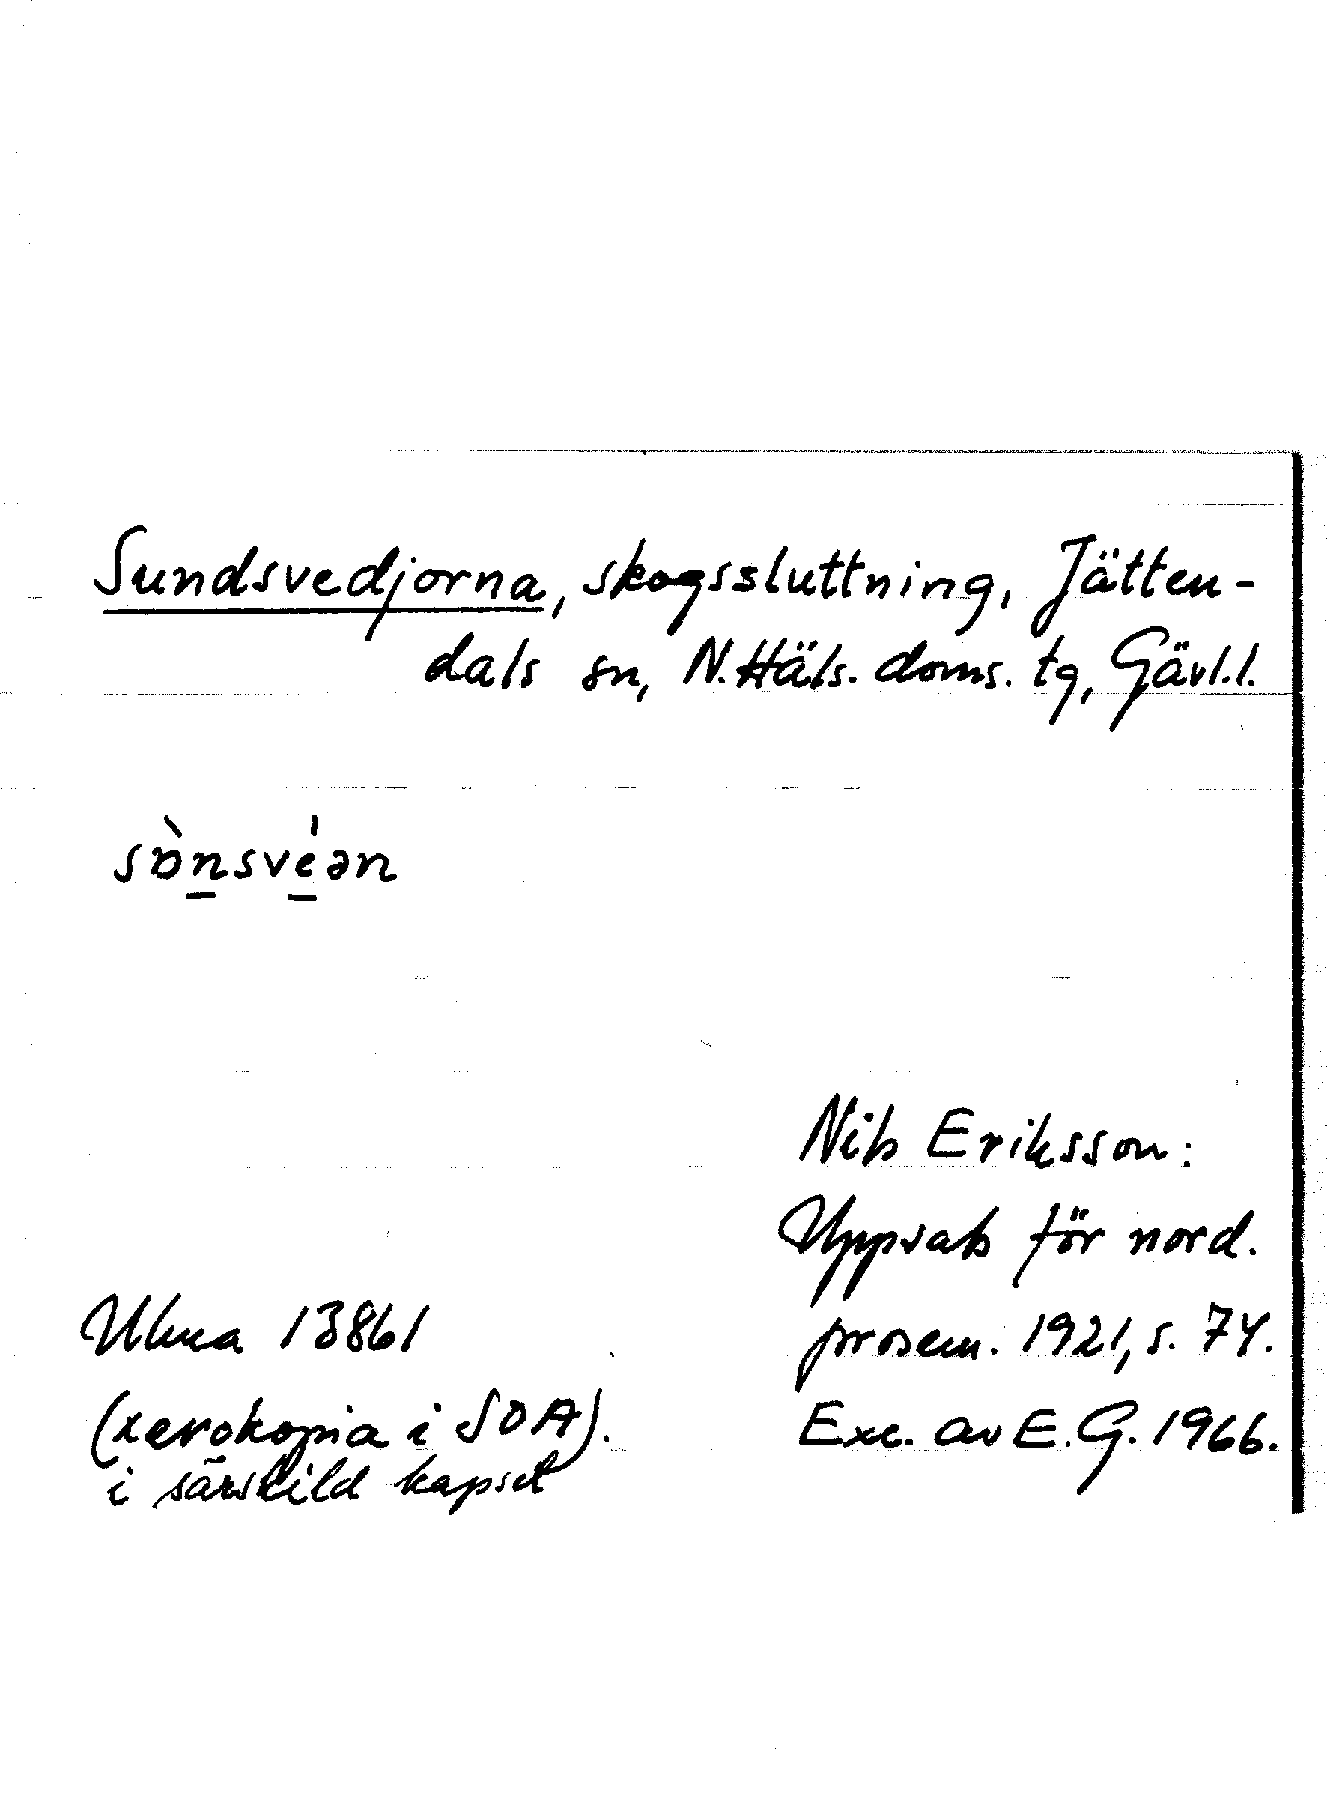 Sundsvedjorna, skogssluttning, Jätten-
dals sn, N. Häls. doms. tg, Gävl. l.
sɒ̀n̲své̲ən
Nils Eriksson:
Uppsats för nord.
prosem. 1921, s. 74.
Exc. av E. G. 1966.
Ulma 13861
(xerokopia i SOA).
i särskild kapsel